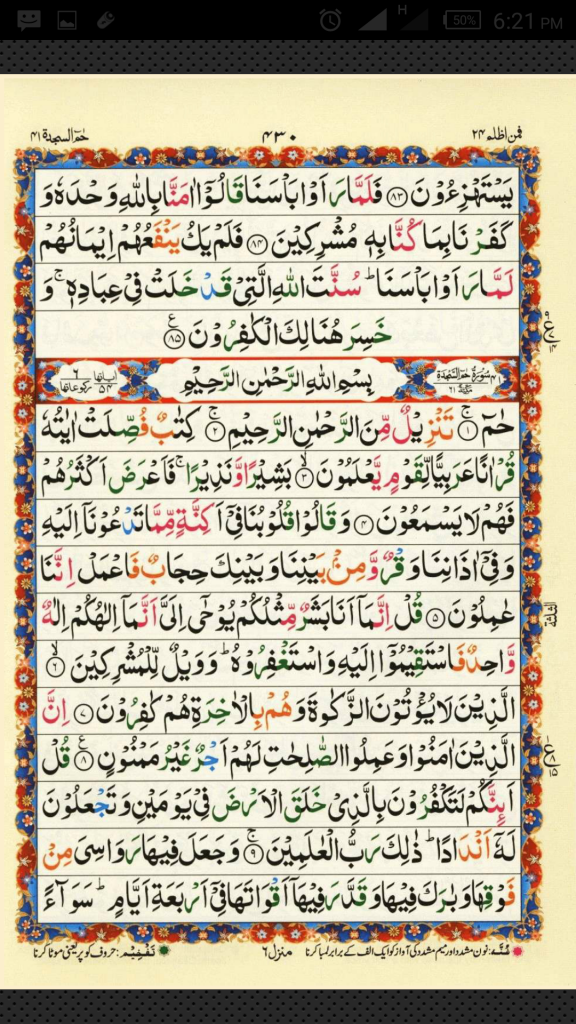 H 50% 6:21 PM
فمن اظلم ۲۴ ۴۳۰ حٰمٓ السجدۃ ۴۱
يَسْتَهْزِءُوْنَ ﴿۸۳﴾ فَلَمَّا رَاَوْا بَاْسَنَا قَالُوْۤا اٰمَنَّا بِاللّٰهِ وَحْدَهٗ وَ
كَفَرْنَا بِمَا كُنَّا بِهٖ مُشْرِكِيْنَ ﴿۸۴﴾ فَلَمْ يَكُ يَنْفَعُهُمْ اِيْمَانُهُمْ
لَمَّا رَاَوْا بَاْسَنَا ؕ سُنَّتَ اللّٰهِ الَّتِيْ قَدْ خَلَتْ فِيْ عِبَادِهٖ ۚ وَ
خَسِرَ هُنَالِكَ الْكٰفِرُوْنَ ﴿۸۵﴾ ع
۴۱ سُوْرَةُ حٰمٓ السَّجْدَةِ مَكِّيَّةٌ ۶۱ بِسْمِ اللّٰهِ الرَّحْمٰنِ الرَّحِيْمِ اٰياتها ۵۴ ركوعاتها ۶
حٰمٓ ﴿۱﴾ ۚ تَنْزِيْلٌ مِّنَ الرَّحْمٰنِ الرَّحِيْمِ ﴿۲﴾ ۚ كِتٰبٌ فُصِّلَتْ اٰيٰتُهٗ
قُرْاٰنًا عَرَبِيًّا لِّقَوْمٍ يَّعْلَمُوْنَ ﴿۳﴾ ۙ بَشِيْرًا وَّنَذِيْرًا ۚ فَاَعْرَضَ اَكْثَرُهُمْ
فَهُمْ لَا يَسْمَعُوْنَ ﴿۴﴾ وَقَالُوْا قُلُوْبُنَا فِيْۤ اَكِنَّةٍ مِّمَّا تَدْعُوْنَاۤ اِلَيْهِ
وَفِيْۤ اٰذَانِنَا وَقْرٌ وَّمِنْۢ بَيْنِنَا وَبَيْنِكَ حِجَابٌ فَاعْمَلْ اِنَّنَا
عٰمِلُوْنَ ﴿۵﴾ قُلْ اِنَّمَاۤ اَنَا بَشَرٌ مِّثْلُكُمْ يُوْحٰۤى اِلَيَّ اَنَّمَاۤ اِلٰهُكُمْ اِلٰهٌ
وَّاحِدٌ فَاسْتَقِيْمُوْۤا اِلَيْهِ وَاسْتَغْفِرُوْهُ ؕ وَوَيْلٌ لِّلْمُشْرِكِيْنَ ﴿۶﴾ ۙ
الَّذِيْنَ لَا يُؤْتُوْنَ الزَّكٰوةَ وَهُمْ بِالْاٰخِرَةِ هُمْ كٰفِرُوْنَ ﴿۷﴾ اِنَّ
الَّذِيْنَ اٰمَنُوْا وَعَمِلُوا الصّٰلِحٰتِ لَهُمْ اَجْرٌ غَيْرُ مَمْنُوْنٍ ﴿۸﴾ ع قُلْ
اَئِنَّكُمْ لَتَكْفُرُوْنَ بِالَّذِيْ خَلَقَ الْاَرْضَ فِيْ يَوْمَيْنِ وَتَجْعَلُوْنَ
لَهٗۤ اَنْدَادًا ؕ ذٰلِكَ رَبُّ الْعٰلَمِيْنَ ﴿۹﴾ ۚ وَجَعَلَ فِيْهَا رَوَاسِيَ مِنْ
فَوْقِهَا وَبٰرَكَ فِيْهَا وَقَدَّرَ فِيْهَاۤ اَقْوَاتَهَا فِيْۤ اَرْبَعَةِ اَيَّامٍ ؕ سَوَآءً
غُنَّہ: نون مشدد اور میم مشدد کی آواز کو ایک الف کے برابر لمبا کرنا منزل ۶ تَفْخِیْم: حروف کو پُر یعنی موٹا کرنا